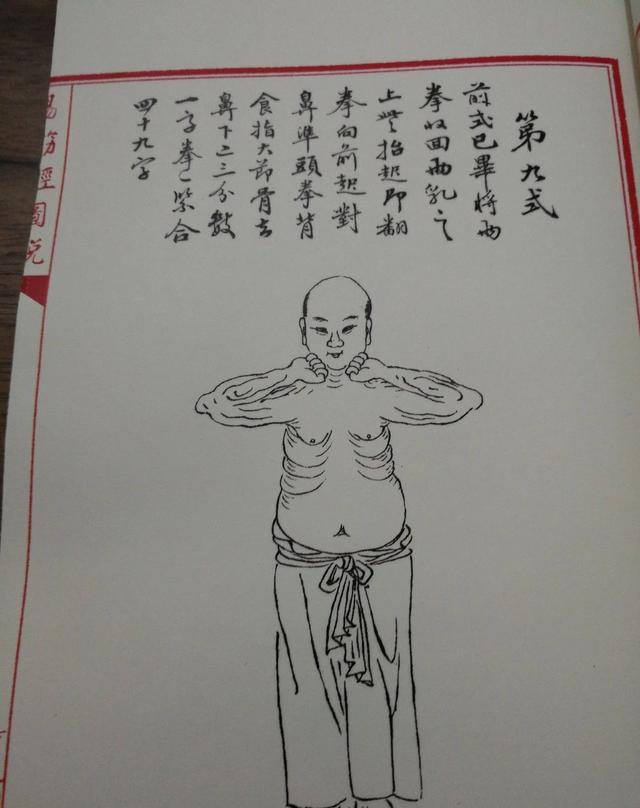 第九式
前式已畢將兩
拳收回兩乳之
上些抬起即翻
拳向前起對
鼻準頭拳背
食指大節骨去
鼻下二三分數
一字拳一緊合
四十九字
易筋經圖說